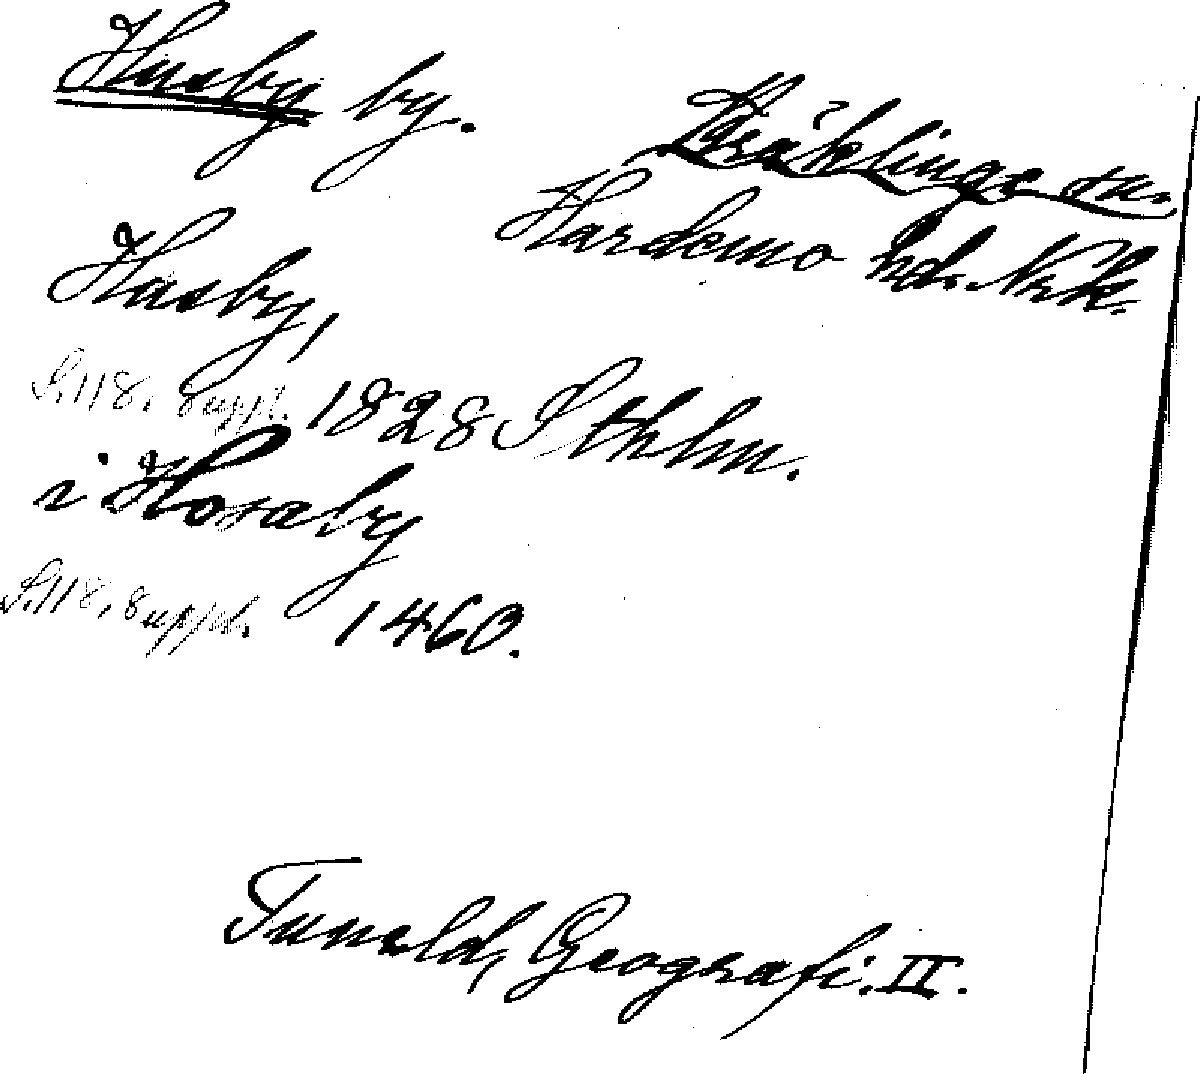 Husby by.
Kräklinge sn.
Hardemo hd. Nrk.
Hasby,
S. 118. Suppl. 1828 Sthlm.
i Hosaby
S. 118, Suppl. 1460.
Tuneld, Geografi. II.